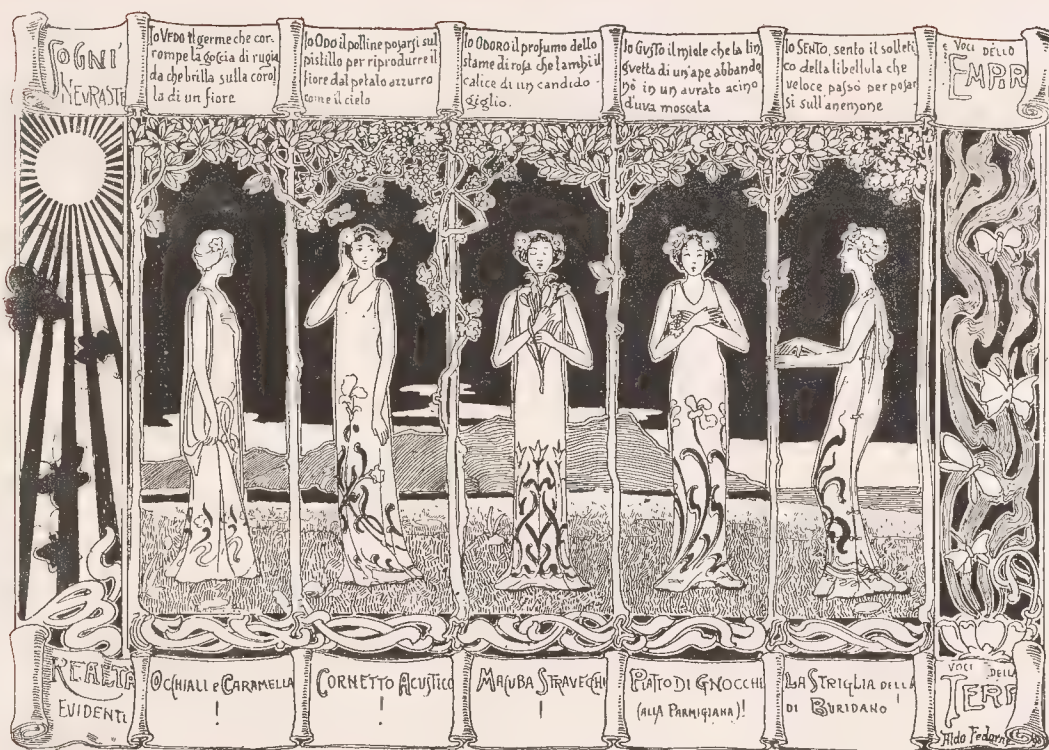 SOGNI
NEVRASTE
Io VEDO il germe che cor-
rompe la goccia di rugia
da che brilla sulla corol
la di un fiore
Io ODO il polline posarsi sul
pistillo per riprodurre il
fiore dal petalo azzurro
come il cielo
Io ODORO il profumo dello
stame di rosa che lambì il
calice di un candido
giglio.
Io GUSTO il miele che la lin
guetta di un'ape abbando
nò in un aurato acino
d'uva moscata
Io SENTO, sento il solleti
co della libellula che
veloce passò per posar
si sull'anemone
E VOCI DELLO
EMPR
REALTA
EVIDENTI
OCCHIALI e CARAMELLA
!
CORNETTO ACUSTICO
!
MACUBA STRAVECCHI
!
PIATTO DI GNOCCHI
(ALLA PARMIGIANA)!
LA STRIGLIA DELLA
DI BURIDANO
VOCI DELLA
TERR
Aldo Fedorn